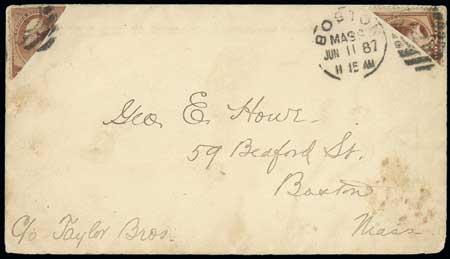 BOSTON
MASS.
JUN 11 87
11 15 AM
Geo. E. Howe.
59 Bedford St.
Boston
Mass.
C/o Taylor Bros.